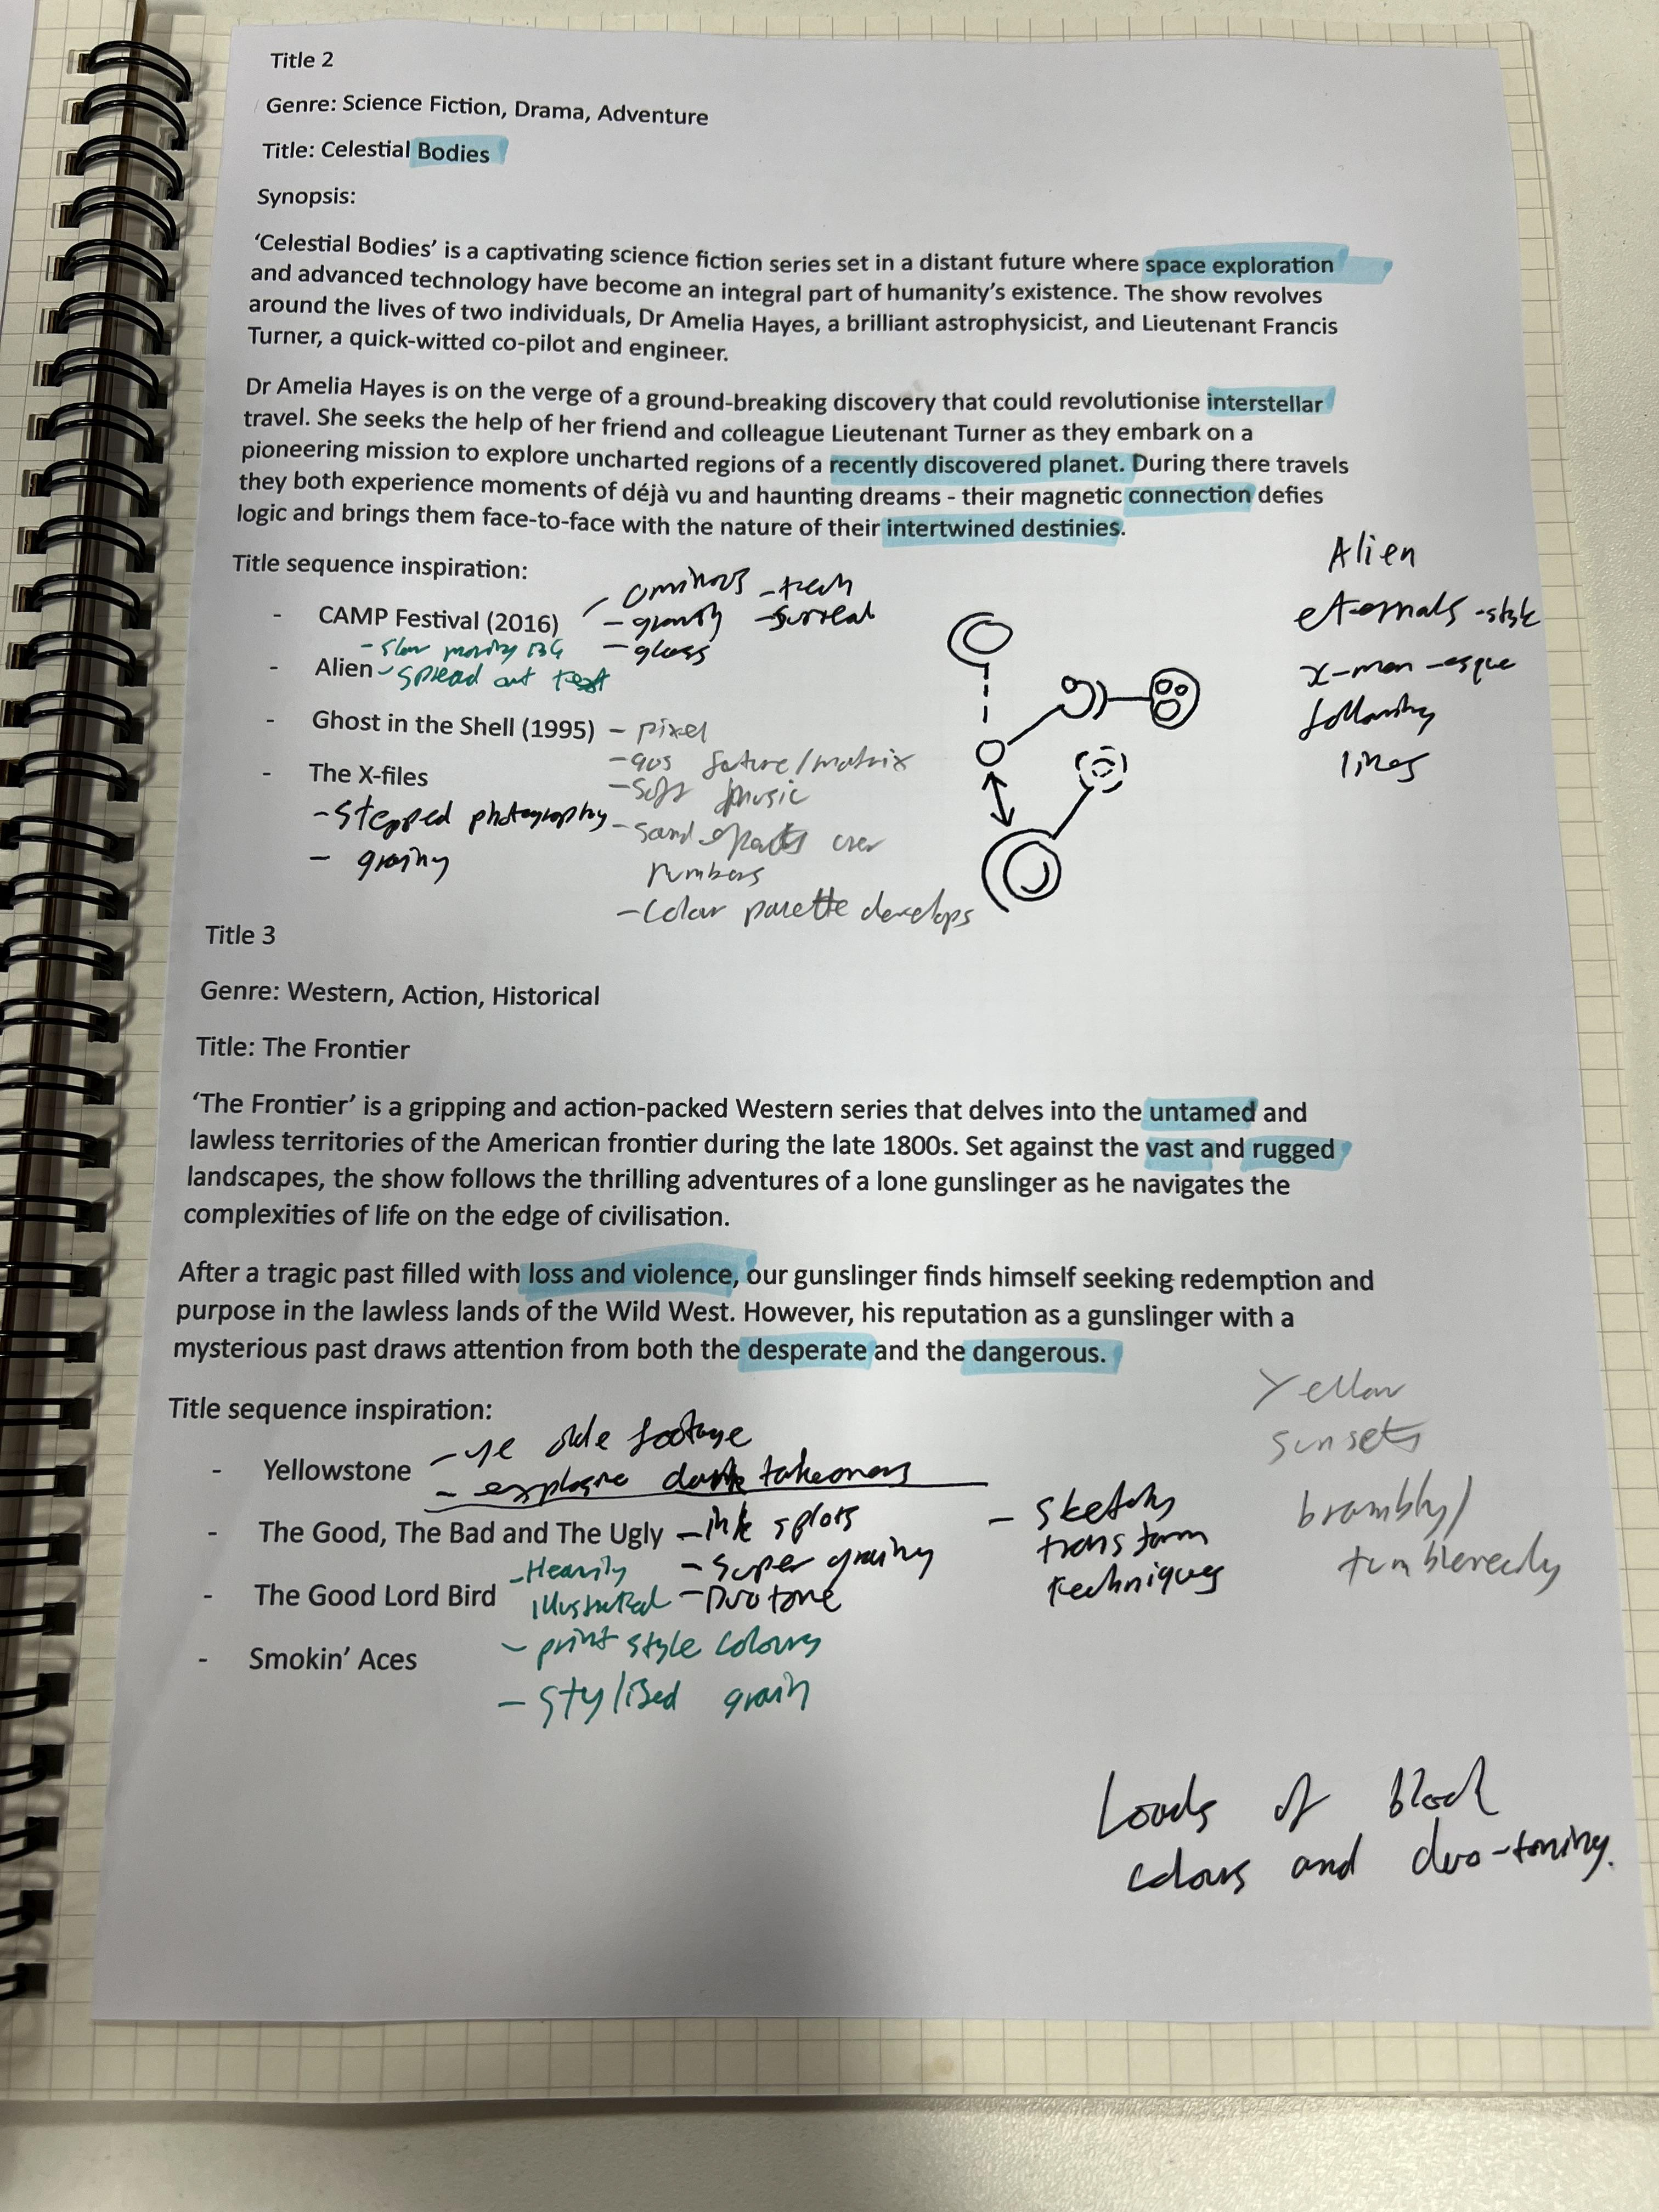 Title 2
Genre: Science Fiction, Drama, Adventure
Title: Celestial Bodies
Synopsis:
‘Celestial Bodies’ is a captivating science fiction series set in a distant future where space exploration
and advanced technology have become an integral part of humanity’s existence. The show revolves
around the lives of two individuals, Dr Amelia Hayes, a brilliant astrophysicist, and Lieutenant Francis
Turner, a quick-witted co-pilot and engineer.
Dr Amelia Hayes is on the verge of a ground-breaking discovery that could revolutionise interstellar
travel. She seeks the help of her friend and colleague Lieutenant Turner as they embark on a
pioneering mission to explore uncharted regions of a recently discovered planet. During there travels
they both experience moments of déjà vu and haunting dreams - their magnetic connection defies
logic and brings them face-to-face with the nature of their intertwined destinies.
Title sequence inspiration:
- CAMP Festival (2016)
- ominous - tech
- growth - surreal
- gloss
- slow moving BG
- Alien - spread out text
- Ghost in the Shell (1995) - pixel
- 90s future/matrix
- soft music
- sound effects over
numbers
- colour palette develops
- The X-files
- stepped photography
- grainy
Alien
eternals -style
x-men -esque
following
lines
Title 3
Genre: Western, Action, Historical
Title: The Frontier
‘The Frontier’ is a gripping and action-packed Western series that delves into the untamed and
lawless territories of the American frontier during the late 1800s. Set against the vast and rugged
landscapes, the show follows the thrilling adventures of a lone gunslinger as he navigates the
complexities of life on the edge of civilisation.
After a tragic past filled with loss and violence, our gunslinger finds himself seeking redemption and
purpose in the lawless lands of the Wild West. However, his reputation as a gunslinger with a
mysterious past draws attention from both the desperate and the dangerous.
Title sequence inspiration:
- Yellowstone - ye olde footage
- explosive dark takeovers
- The Good, The Bad and The Ugly - ink splots
- super grainy
- Duotone
- sketchy
transform
techniques
- The Good Lord Bird - Heavily
illustrated
- print style colours
- stylised grain
- Smokin’ Aces
Yellow
sunsets
brambly/
tumbleweedy
Loads of block
colours and duo-toning.